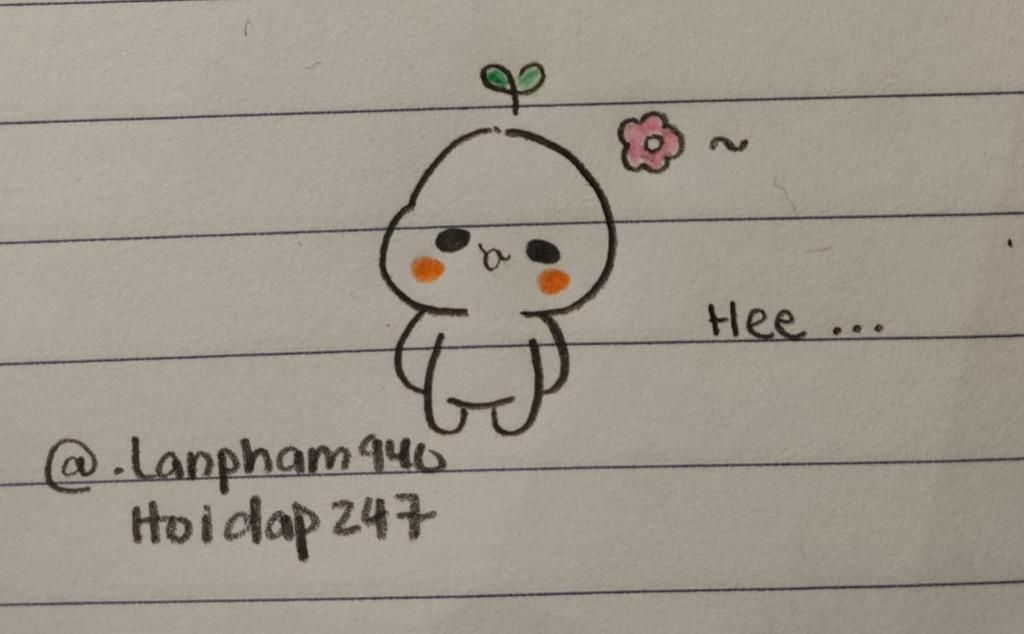 ~
Hee ...
@.lanpham940
Hoidap247